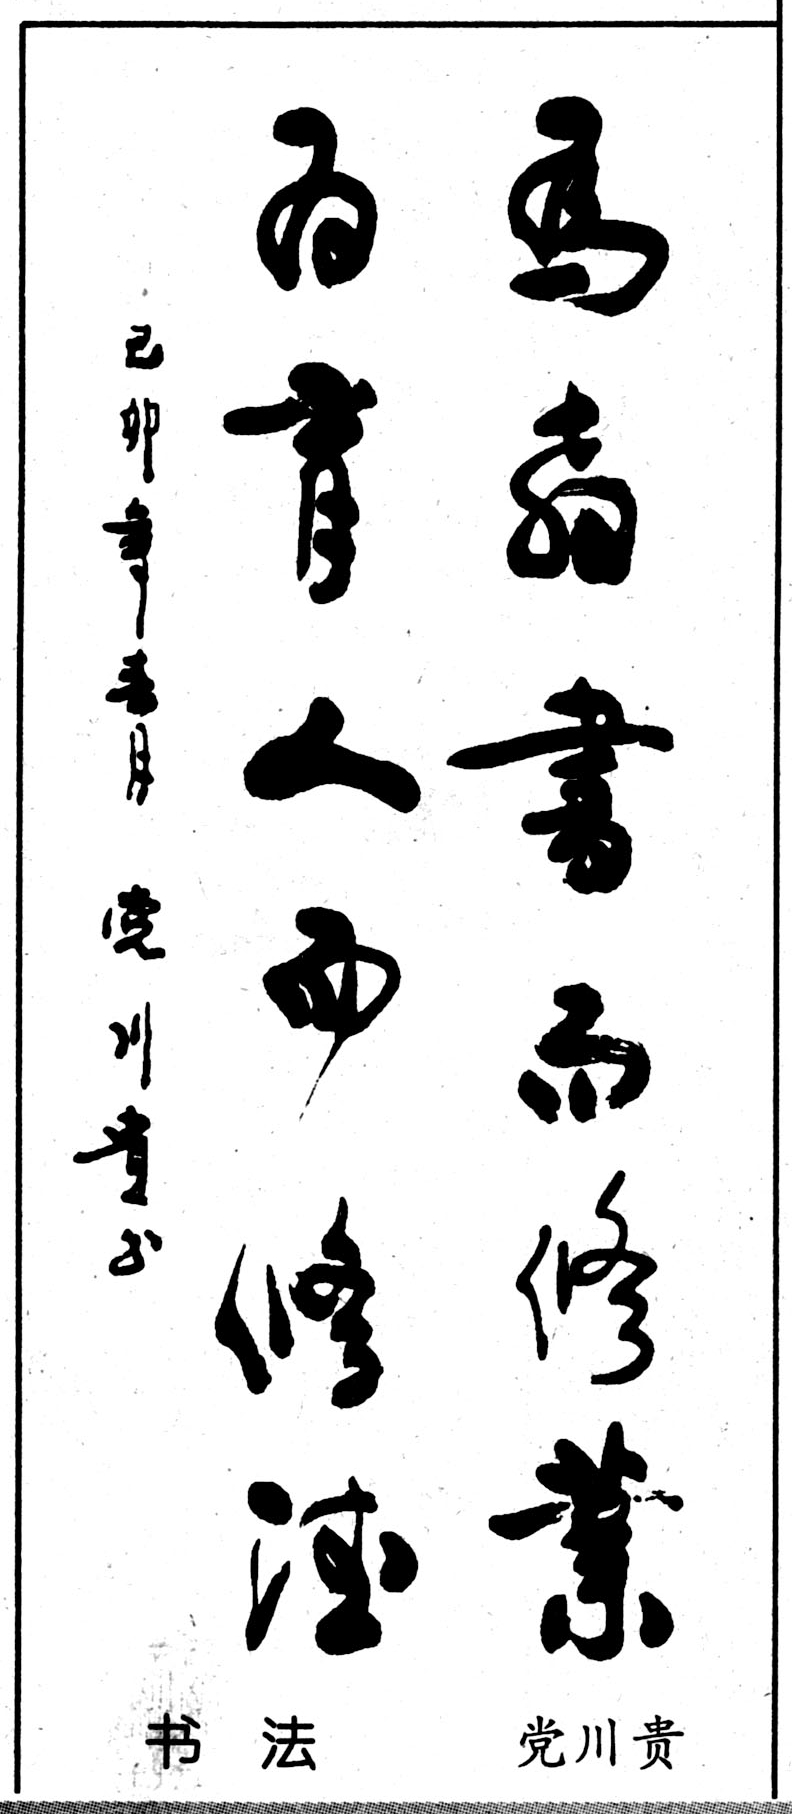 為教書而修業
为育人而修德
己卯年春月 党川貴书
党川贵
书 法